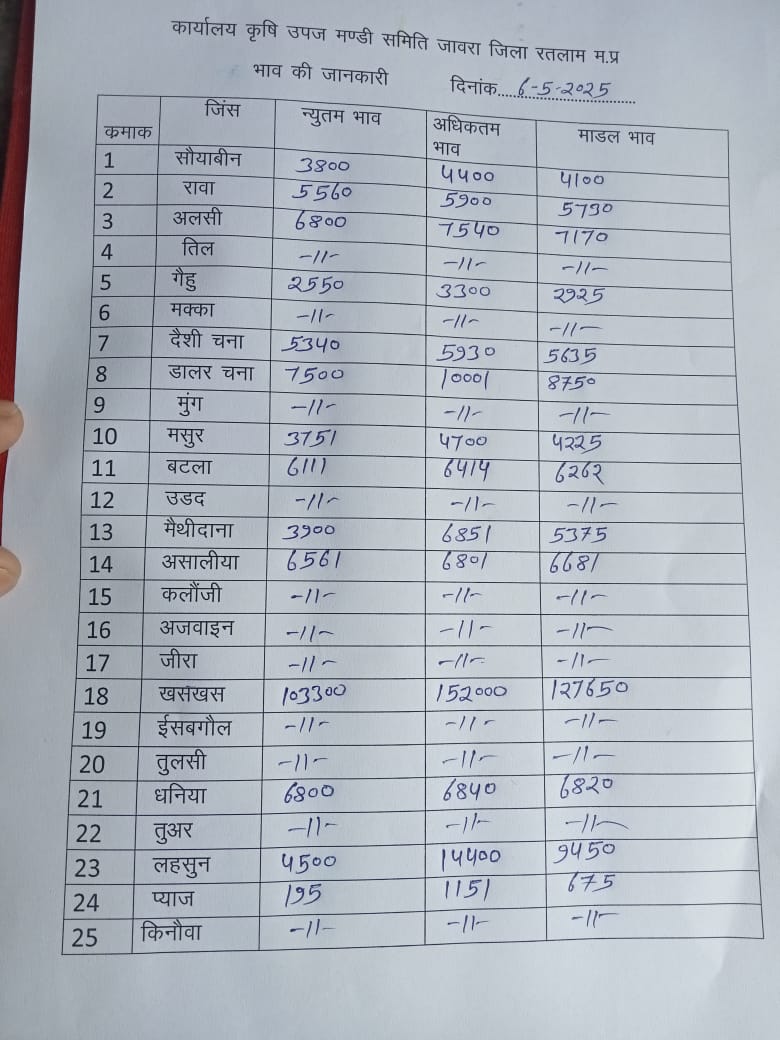 कार्यालय कृषि उपज मण्डी समिति जावरा जिला रतलाम म.प्र
भाव की जानकारी दिनांक....6-5-2025
कमाक जिंस न्युतम भाव अधिकतम भाव माडल भाव
1 सौयाबीन 3800 4400 4100
2 रावा 5560 5900 5730
3 अलसी 6800 7540 7170
4 तिल -11- -11- -11-
5 गैहु 2550 3300 2925
6 मक्का -11- -11- -11-
7 दैशी चना 5340 5930 5635
8 डालर चना 7500 10001 8750
9 मुंग -11- -11- -11-
10 मसुर 3751 4700 4225
11 बटला 6111 6414 6262
12 उडद -11- -11- -11-
13 मैथीदाना 3900 6851 5375
14 असालीया 6561 6801 6681
15 कलौंजी -11- -11- -11-
16 अजवाइन -11- -11- -11-
17 जीरा -11- -11- -11-
18 खसखस 103300 152000 127650
19 ईसबगौल -11- -11- -11-
20 तुलसी -11- -11- -11-
21 धनिया 6800 6840 6820
22 तुअर -11- -11- -11-
23 लहसुन 4500 14400 9450
24 प्याज 195 1151 675
25 किनौवा -11- -11- -11-